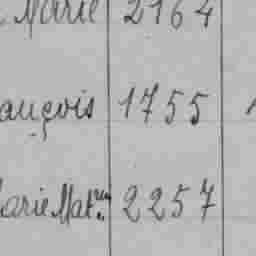 Marie 2164
ançois 1755
arie Mat.ne 2257